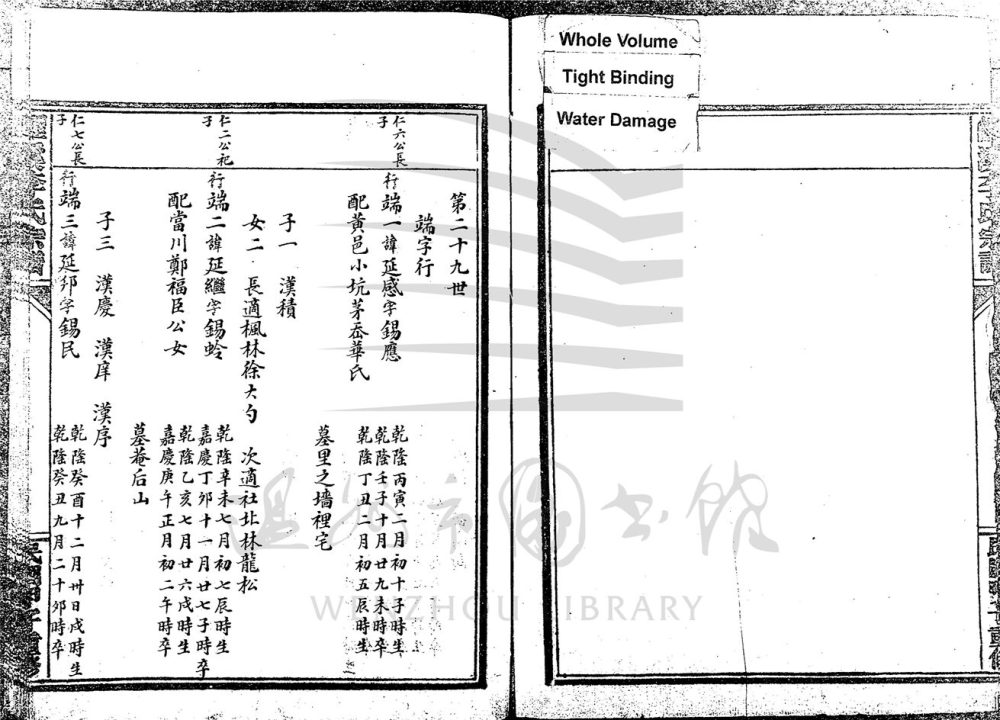 Whole Volume
Tight Binding
Water Damage
第二十九世
端字行
仁六公長子
行端一諱延感字錫應
乾隆丙寅二月初十子時生
乾隆壬子十月廿九未時卒
配黃邑小坑茅岙華氏
乾隆丁丑二月初五辰時生
墓里之墻裡宅
子一 漢積
女二 長適楓林徐大勺 次適社北林龍松
仁二公祀子
行端二諱延繼字錫蛉
乾隆辛未七月初七辰時生
嘉慶丁卯十一月廿七子時卒
配當川鄭福臣公女
乾隆乙亥七月廿六戌時生
嘉慶庚午正月初二午時卒
墓菴后山
子三 漢慶 漢庠 漢序
仁七公長子
行端三諱延邦字錫民
乾隆癸酉十二月卅日戌時生
乾隆癸丑九月二十卯時卒
溫州市圖書館
WENZHOU LIBRARY